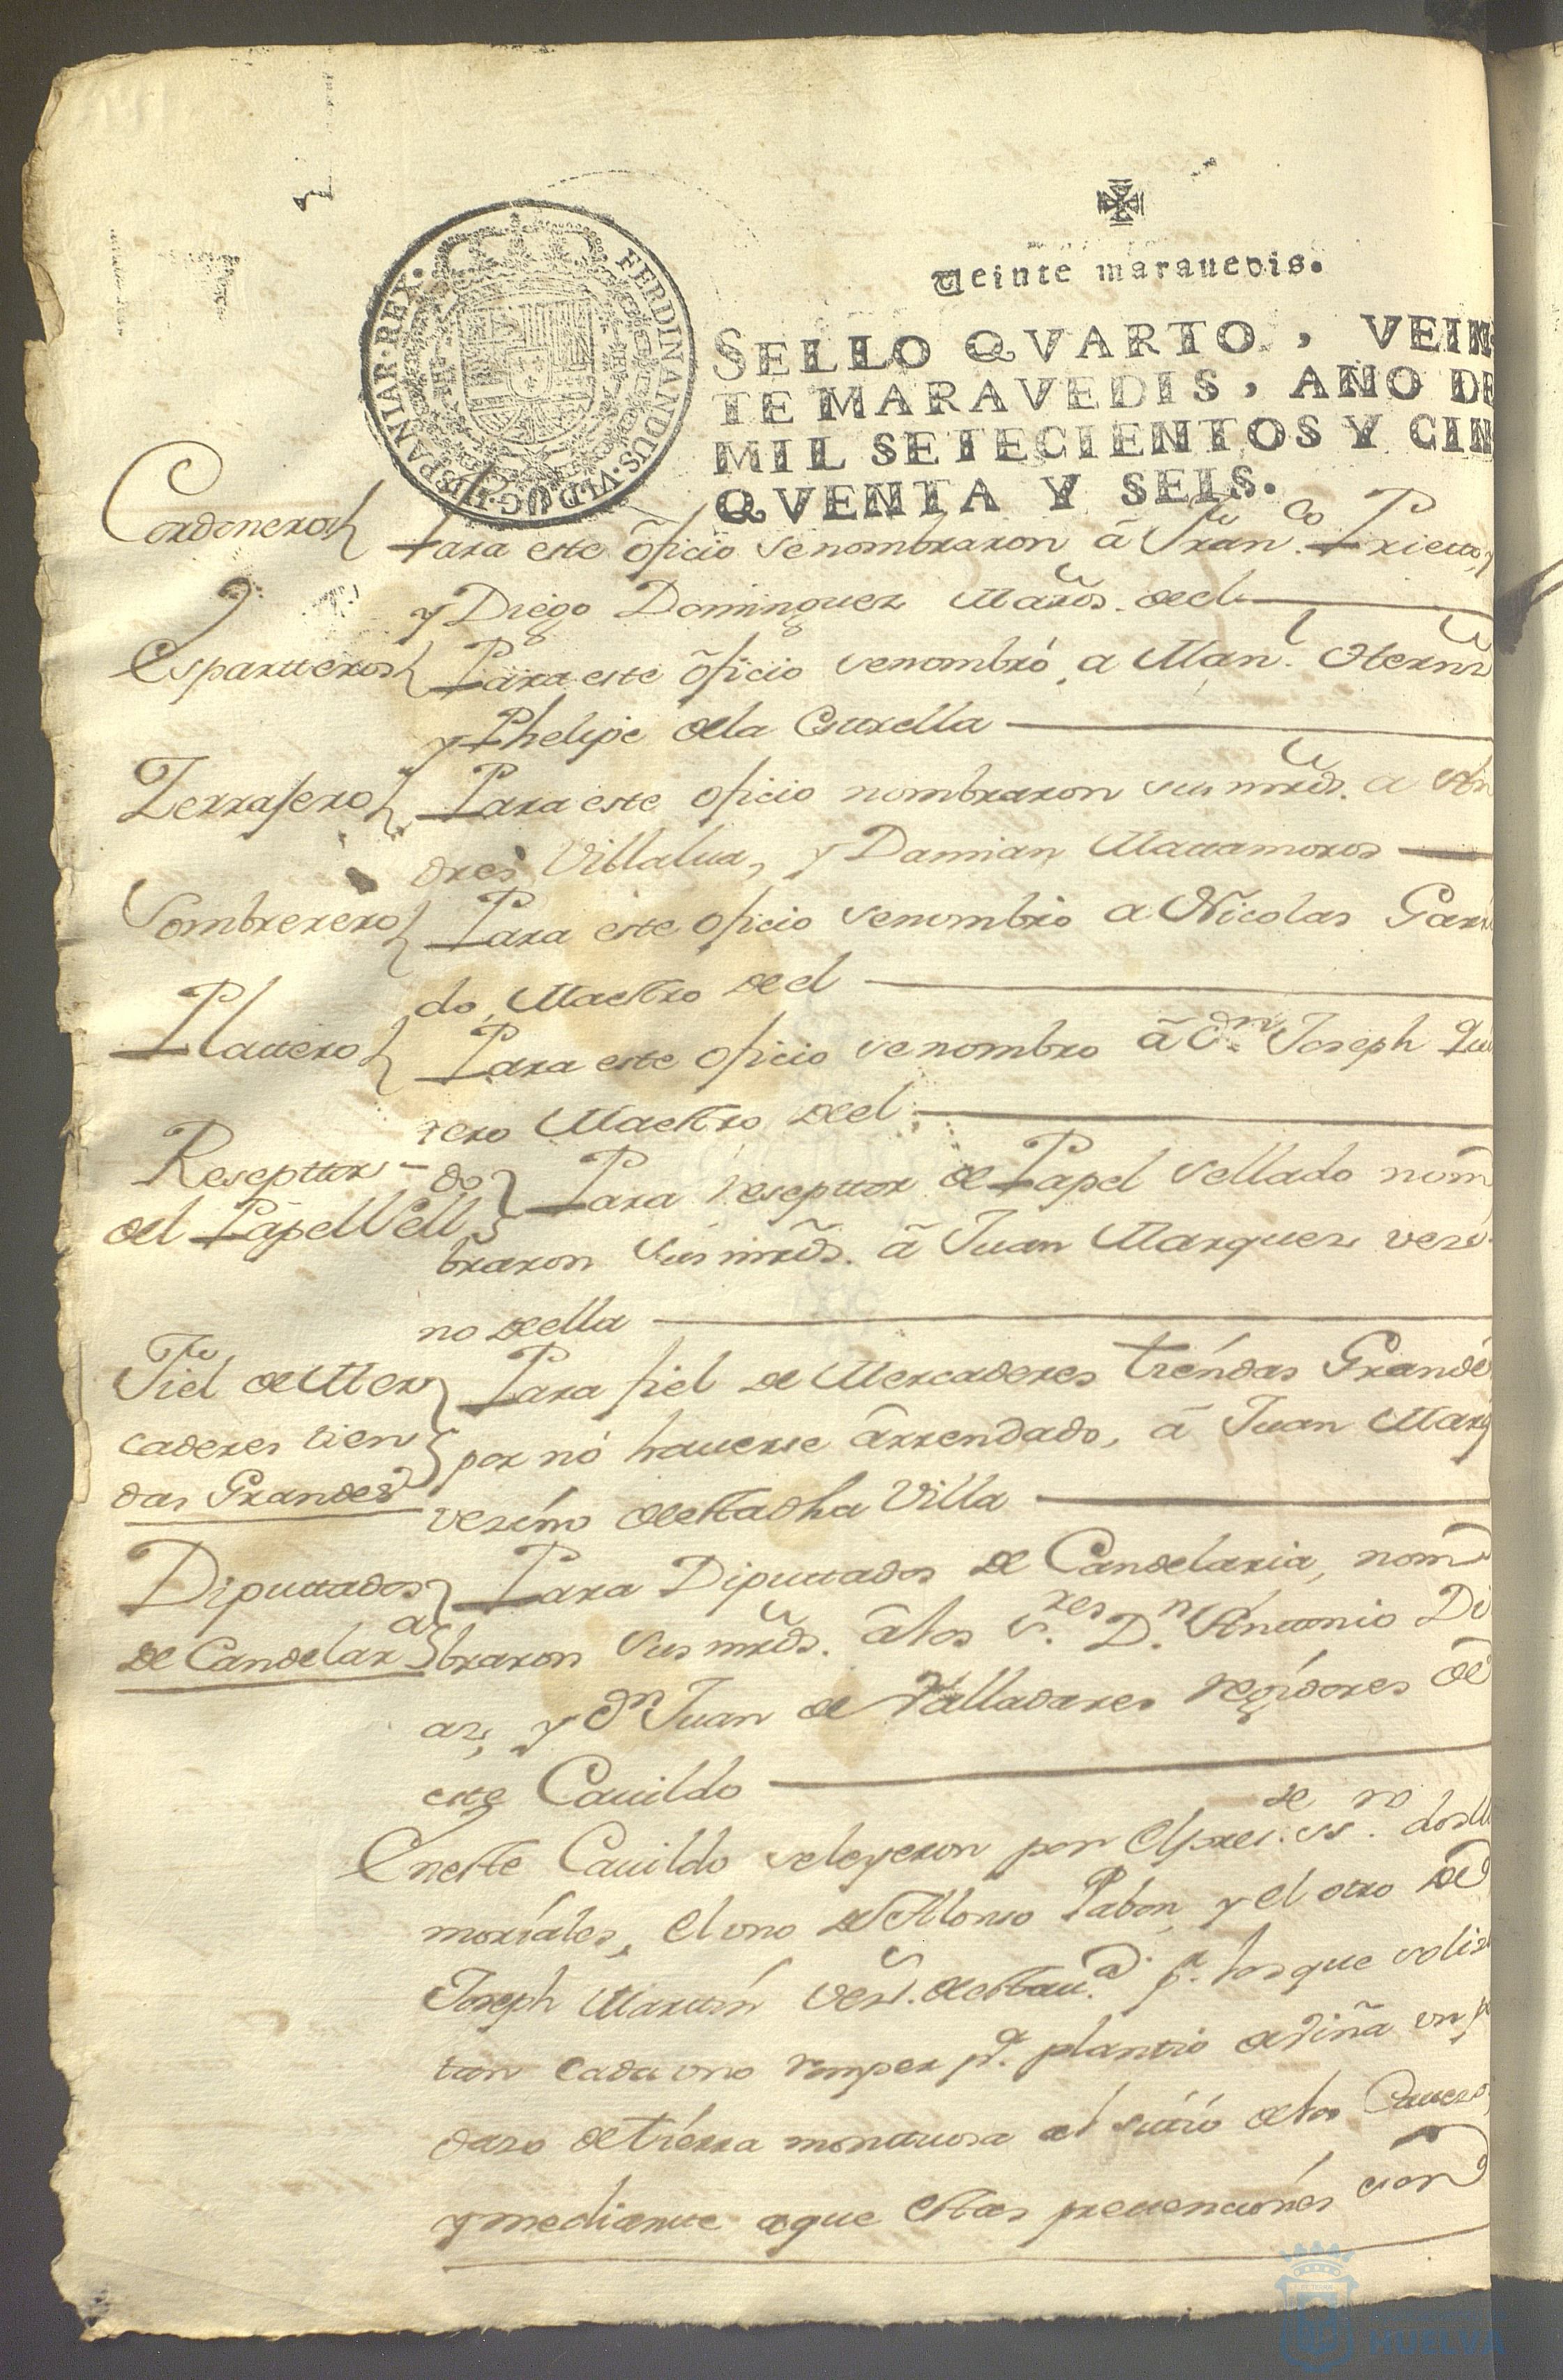 Veinte marauedis.
FERDINANDUS·VI·D·G·HISPANIAR·REX·
SELLO QVARTO, VEIN
TE MARAVEDIS, AÑO DE
MIL SETECIENTOS Y CIN
QVENTA Y SEIS.
Cordoneros Para este õficio se nombraron â Franco. Prieto, y
y Diego Dominguez Maros. de el
Esparteros Para este õficio se nombró a Manl. Hernz
y Phelipe de la Corella
Zerrajero Para este oficio nombraron sus mrds. a An
dres Villalua, y Damian Matamoros
Sombrerero Para este oficio se nombro a Nicolas Garri
do, Maestro de el
Platero Para este oficio se nombro â Dn. Joseph Qui
tero Maestro de el
Reseptor
del Papel Selldo Para reseptor de Papel sellado nom
braron sus mrds. â Juan Marquez vezi
no de ella
Fiel de Mer
caderes tien
das Grandes
Para fiel de Mercaderes tiendas Grandes
por nó hauerse ârrendado, â Juan Marq
vezino de esta dha Villa
Diputados
de Candelara
Para Diputados de Candelaria, nom
braron sus mrds. â los Sres. Dn. Antonio Di
az, y Dn Juan de Valladares regidores de
este Cauildo
En este Cauildo se leyeron por el preste. ssno. dos Me
moriales, el uno de Alonso Pabon, y el otro de
Joseph Martin vezs. de esta va. pr. los que solizi
tan cada uno romper pa. plantio de viña un pe
dazo de tierra montuosa al sitio de los
y mediante a que estas preuenciones
HUELVA